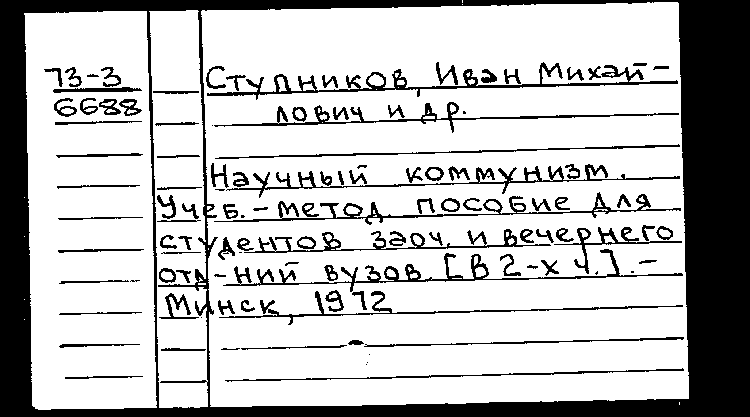 73-3
6688
Ступников, Иван Михай-
лович и др.
Научный коммунизм.
Учеб.-метод. пособие для
студентов заоч. и вечернего
отд-ний вузов. [В 2-х ч.].-
Минск, 1972